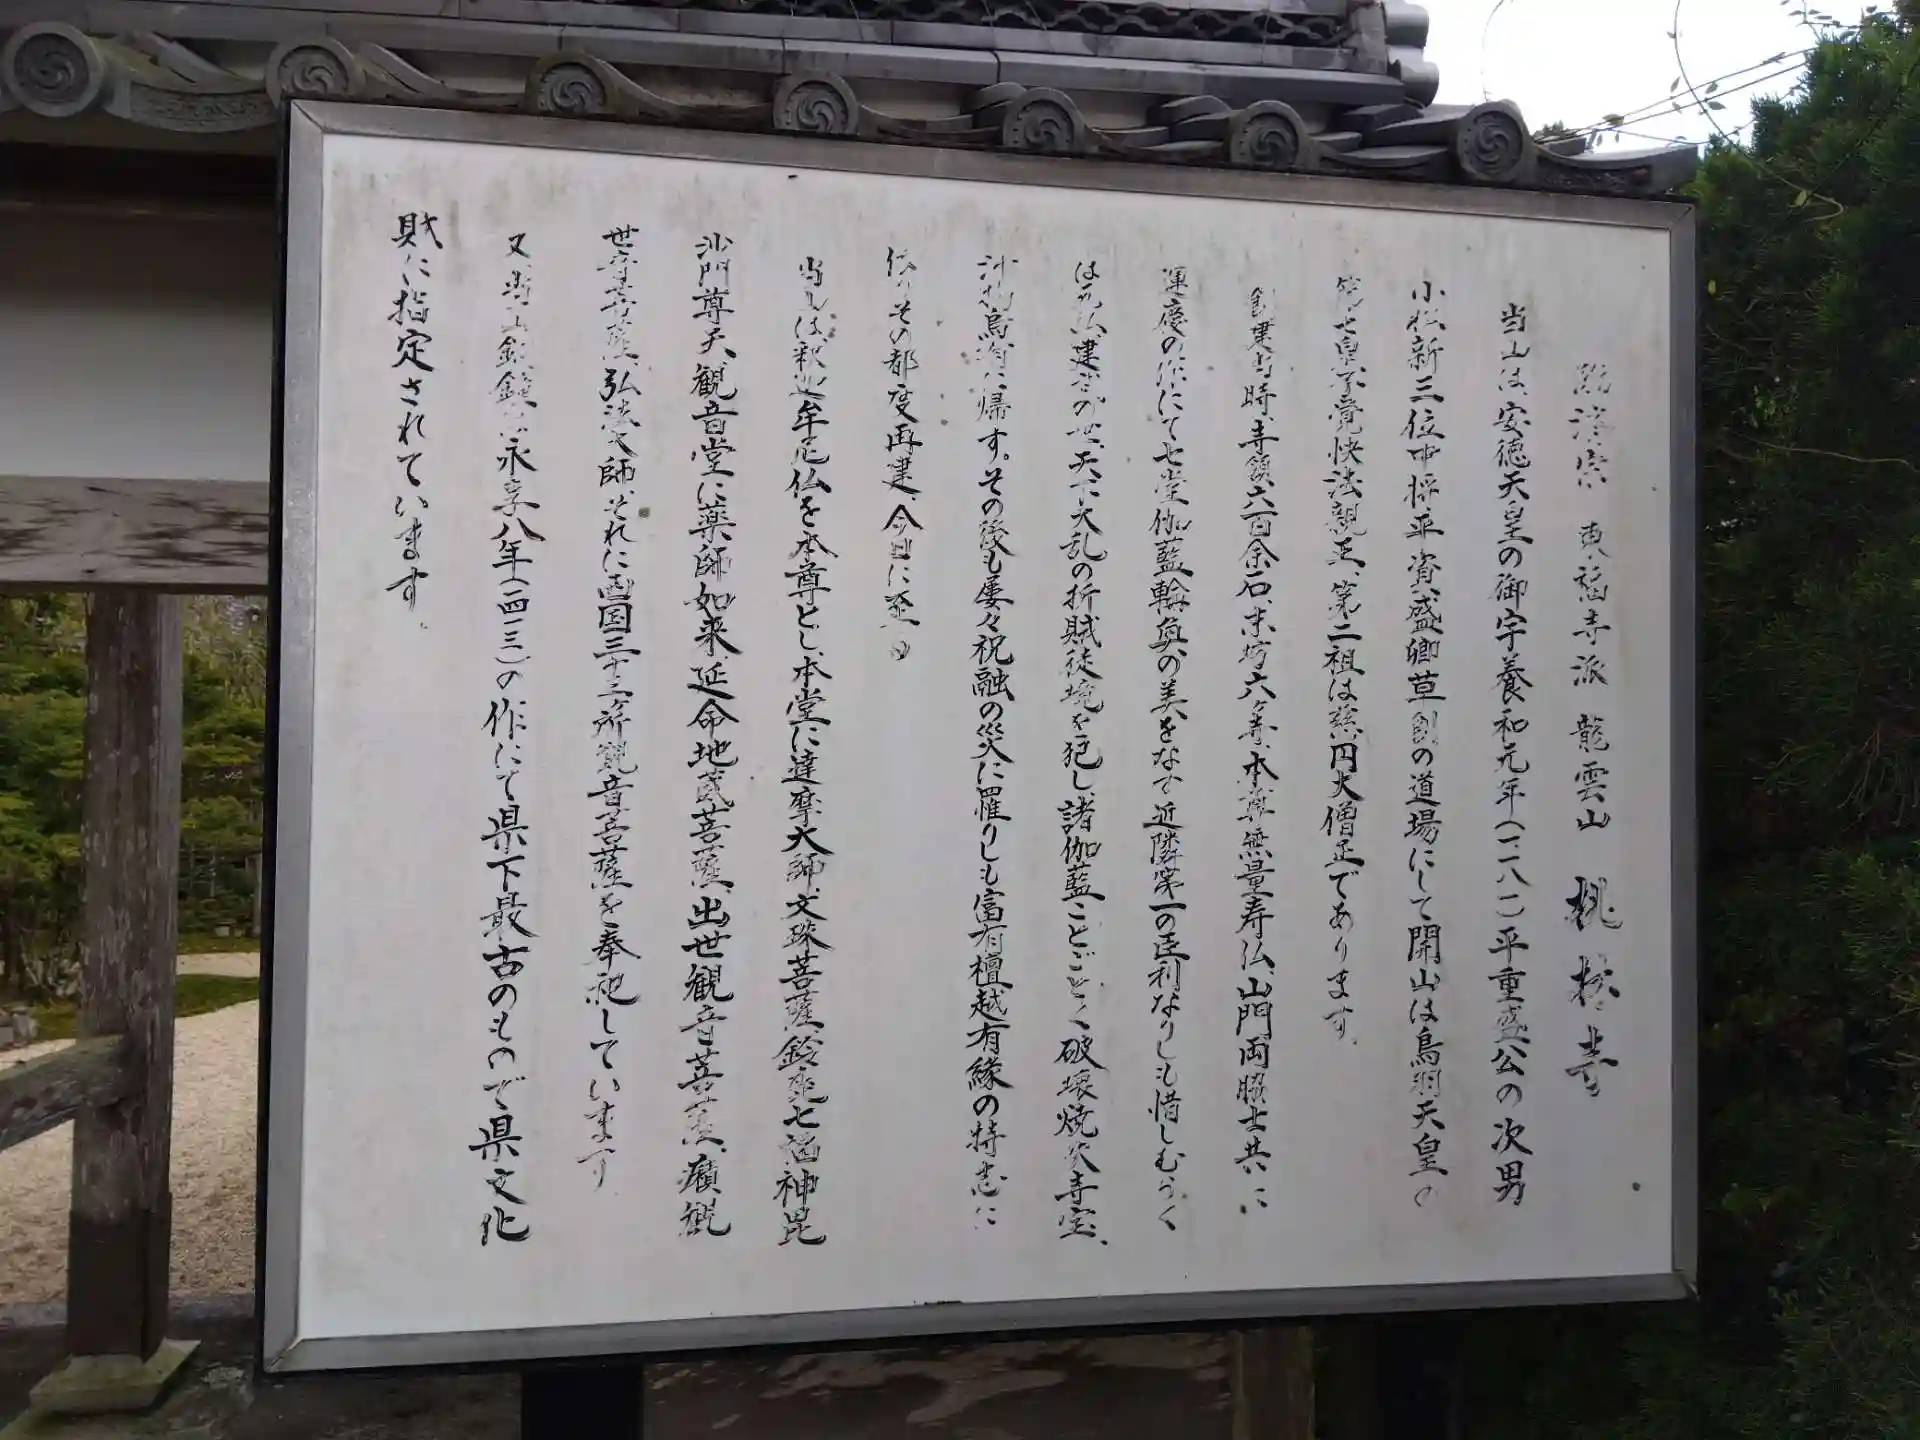 臨済宗 東福寺派 龍雲山 桃林寺
当山は、安徳天皇の御宇養和元年(一一八一)平重盛公の次男
小松新三位中将平資盛卿草創の道場にして開山は鳥羽天皇の
第七皇子覚快法親王、第二祖は慈円大僧正であります。
創建当時、寺領六百余石、末坊六ヶ寺、本尊無量寿仏、山門両脇士共に
運慶の作にて七堂伽藍輪奐の美をなす近隣第一の臣利なりしも惜しむらく
は元弘建武の世、天下大乱の折賊徒境を犯し、諸伽藍ことごとく破壊焼失寺宝、
什物烏有に帰す。その後も屡々祝融の災に罹りしも富有檀越有縁の特志に
依りその都度再建、今日に至り
当山は釈迦牟尼仏を本尊とし、本堂に達摩大師、文珠菩薩、鈴鹿七福神毘
沙門尊天、観音堂に薬師如来、延命地蔵菩薩、出世観音菩薩、癪観
世音菩薩、弘法大師、それに西国三十三ヶ所観音菩薩を奉祀しています
又、当山の永享八年(一四三三)の作にて県下最古のもので県文化
財に指定されています。